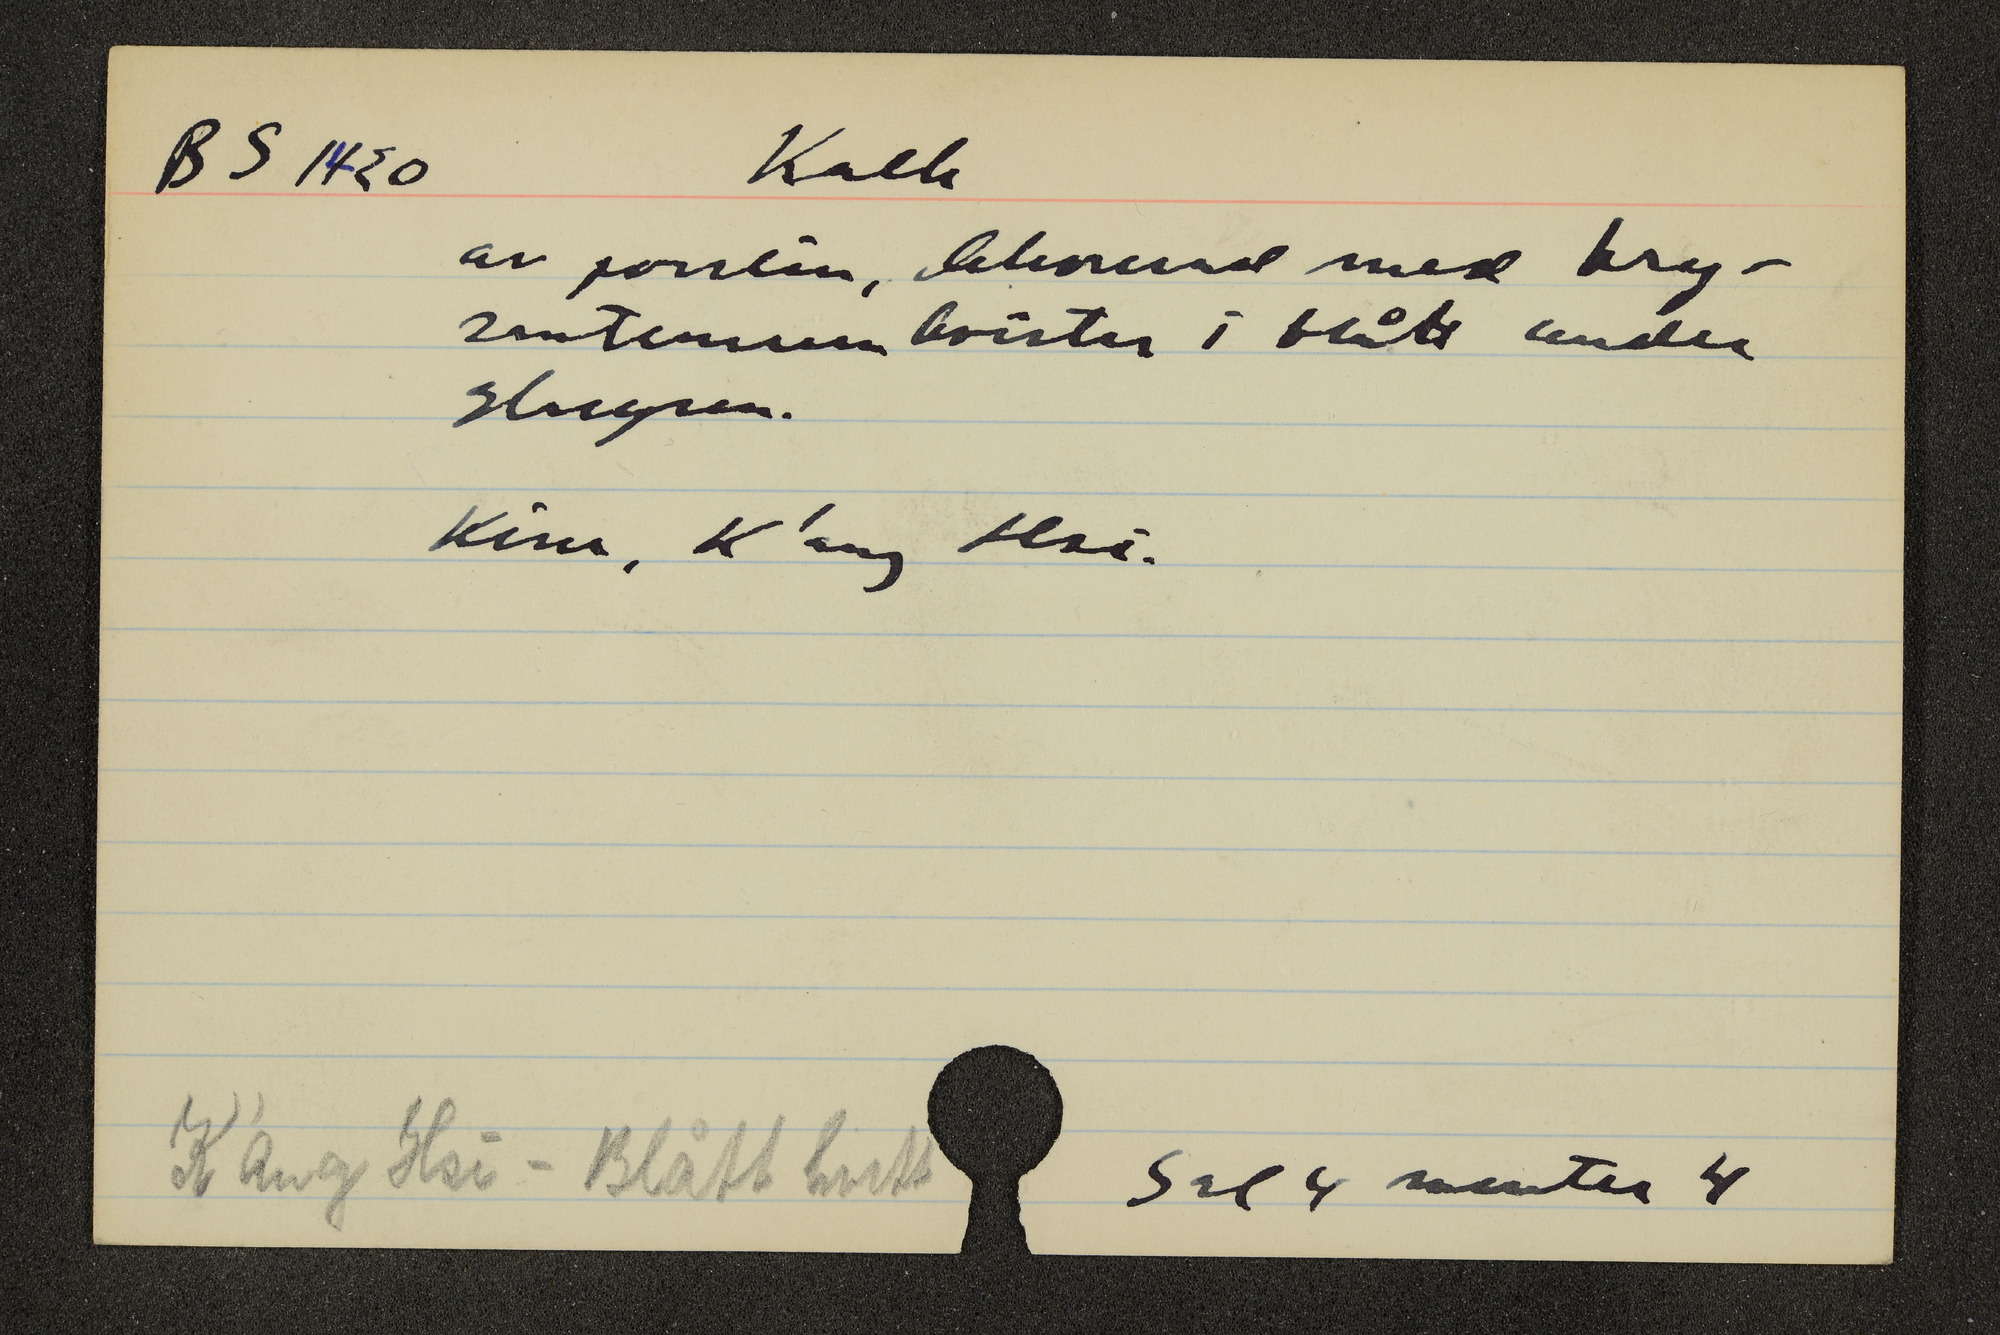 BS 1430 Kalk
av porslin, dekorerad med kry-
santemumkvistar i blått under
glasyren.
Kina, K'ang Hsi.
K'ang Hsi - Blått vitt
Sal 4 monter 4